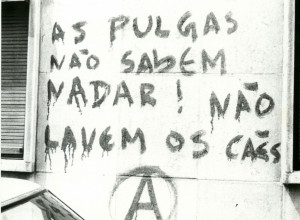 AS PULGAS
NÃO SABEM
NADAR! NÃO
LAVEM OS CÃES
A